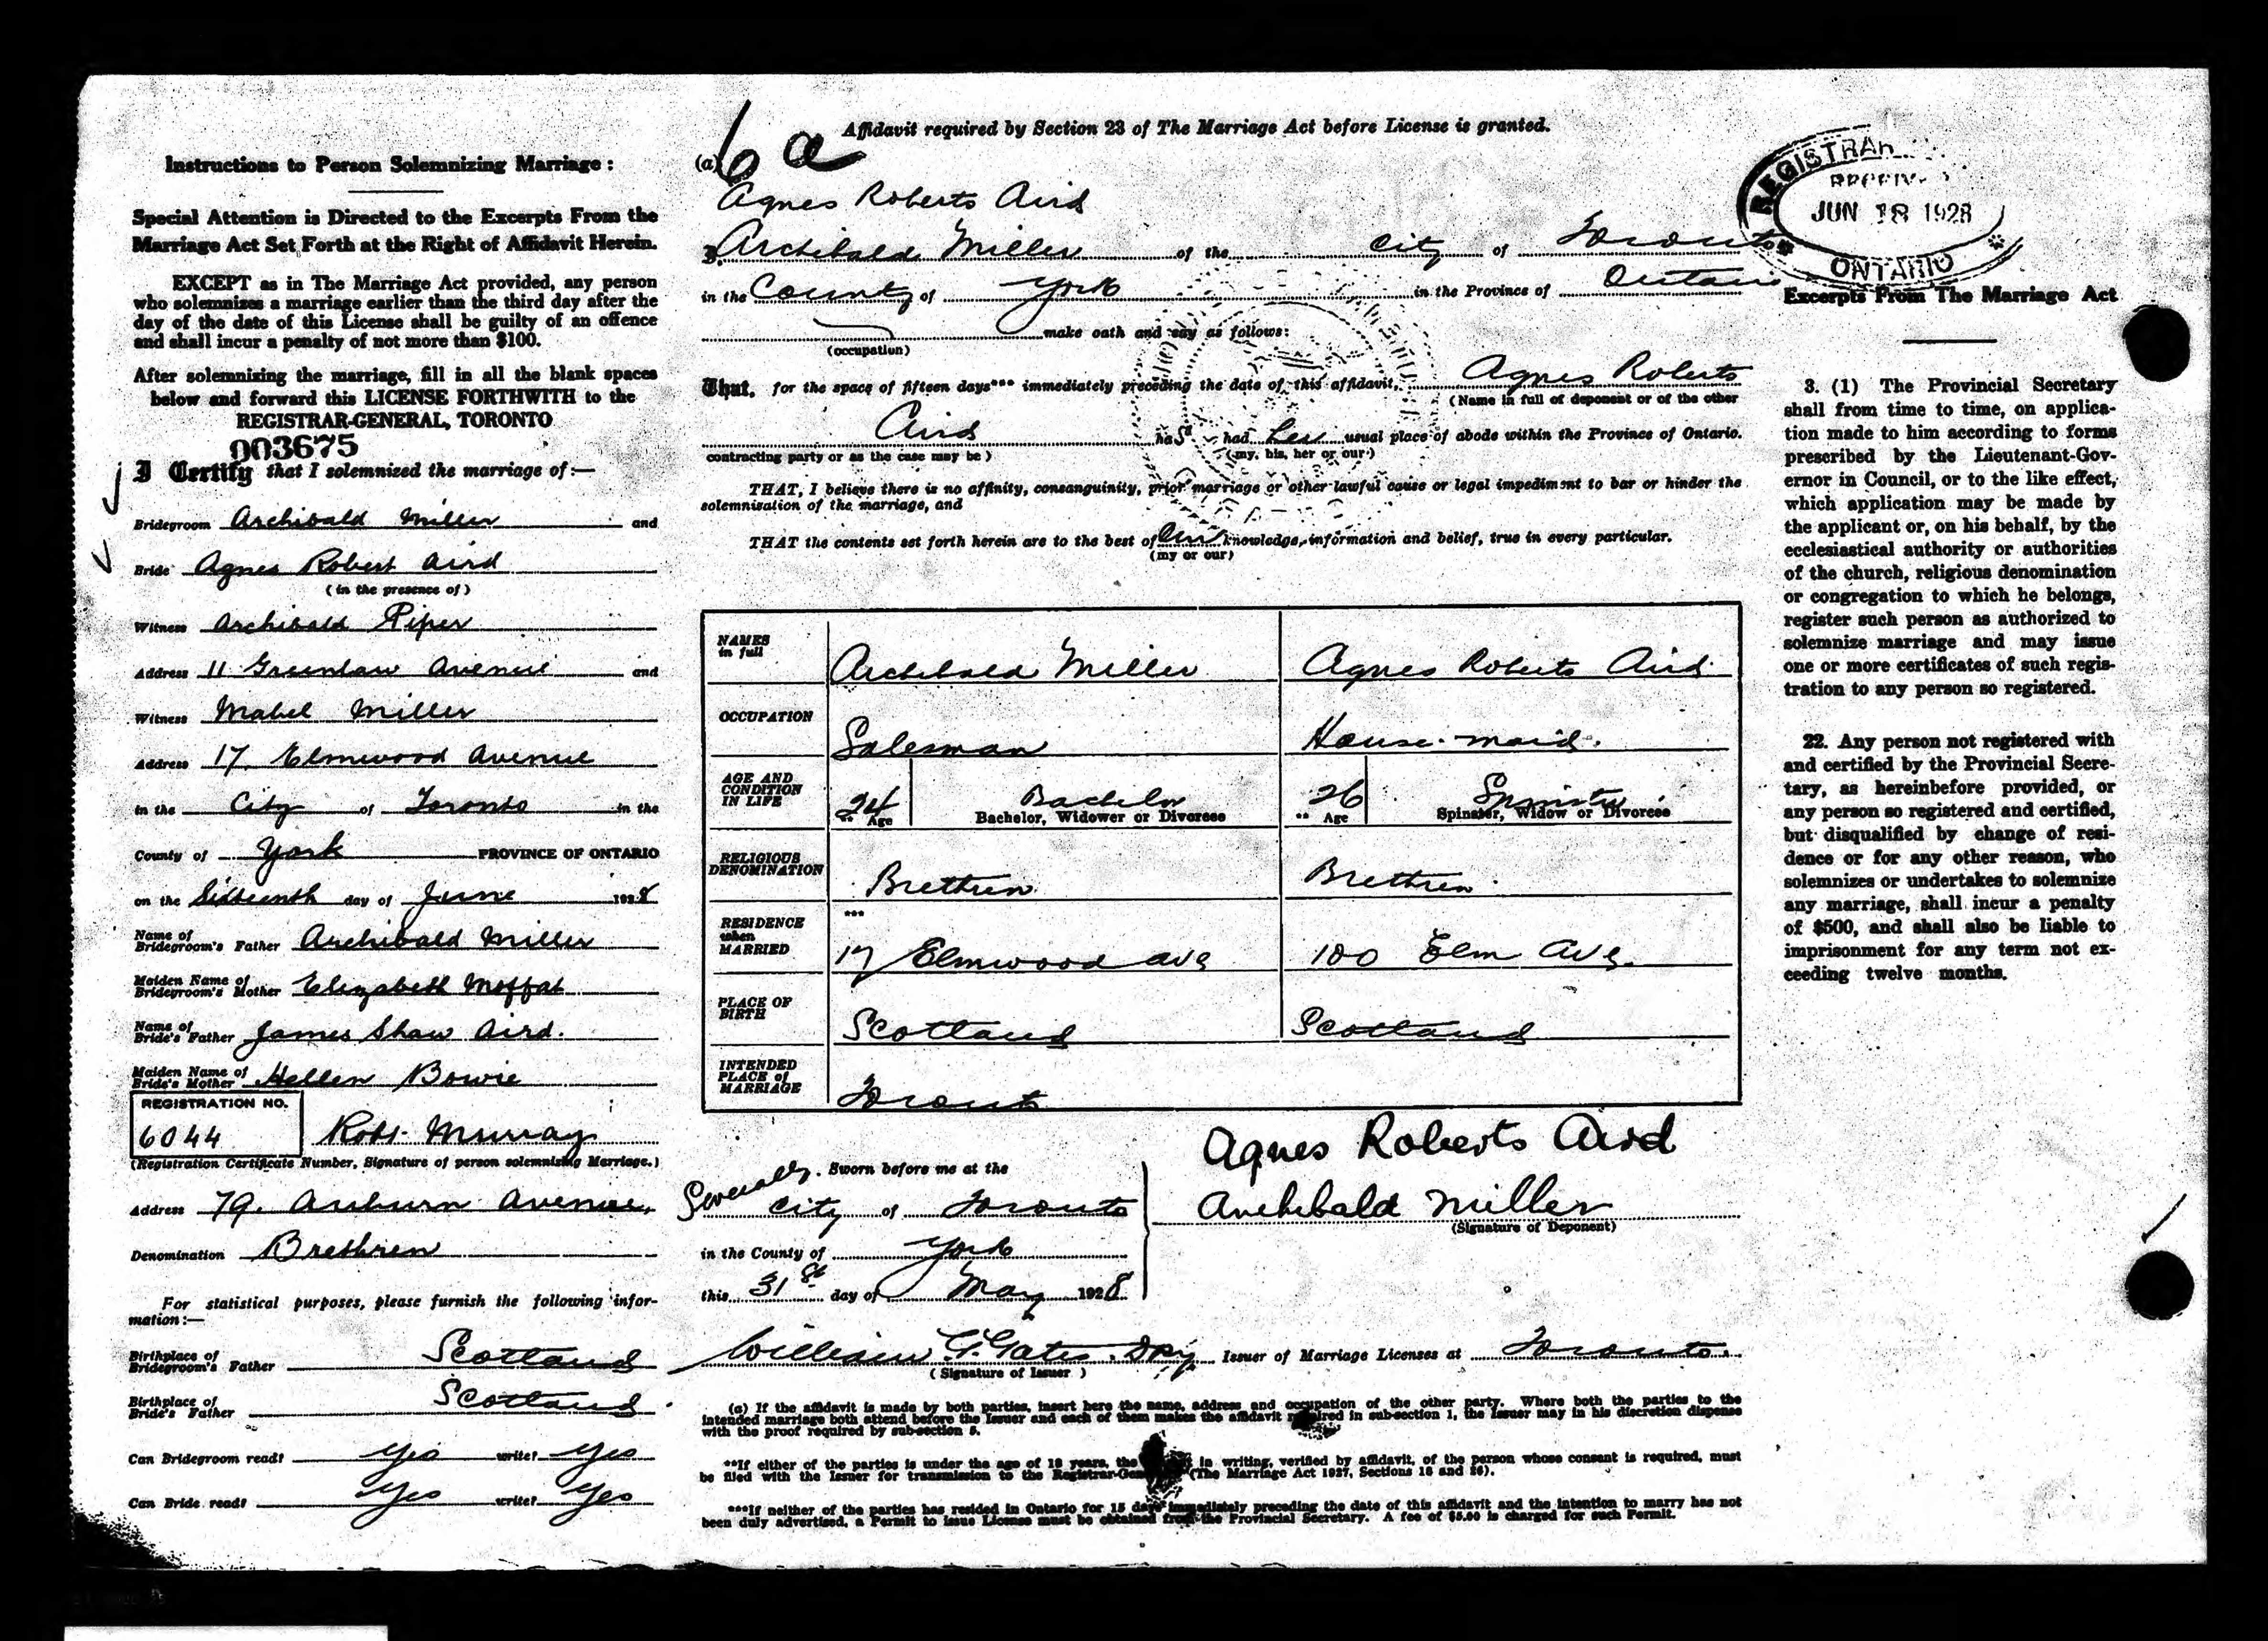 Instructions to Person Solemnizing Marriage:
Special Attention is Directed to the Excerpts From the
Marriage Act Set Forth at the Right of Affidavit Herein.
EXCEPT as in The Marriage Act provided, any person
who solemnizes a marriage earlier than the third day after the
day of the date of this License shall be guilty of an offence
and shall incur a penalty of not more than $100.
After solemnizing the marriage, fill in all the blank spaces
below and forward this LICENSE FORTHWITH to the
REGISTRAR-GENERAL, TORONTO
003675
I Certify that I solemnized the marriage of:—
Bridegroom Archibald Miller and
Bride Agnes Robert Aird
(in the presence of)
Witness Archibald Piper
Address 11 Greenlaw Avenue and
Witness Mabel Miller
Address 17. Elmwood Avenue
in the City of Toronto in the
County of York PROVINCE OF ONTARIO
on the Sixteenth day of June 1928
Name of
Bridegroom's Father Archibald Miller
Maiden Name of
Bridegroom's Mother Elizabeth Moffat
Name of
Bride's Father James Shaw Aird.
Maiden Name of
Bride's Mother Hellen Bowie
REGISTRATION NO.
6044 Robt. Murray
(Registration Certificate Number, Signature of person solemnizing Marriage.)
Address 79. Auburn Avenue,
Denomination Brethren
For statistical purposes, please furnish the following infor-
mation:—
Birthplace of
Bridegroom's Father Scotland
Birthplace of
Bride's Father Scotland
Can Bridegroom read? Yes write? Yes
Can Bride read? Yes write? Yes
Affidavit required by Section 23 of The Marriage Act before License is granted.
(a) 6 a
Agnes Roberts Aird
I, Archibald Miller of the City of Toronto
in the County of York in the Province of Ontario
make oath and say as follows:
(occupation)
That, for the space of fifteen days*** immediately preceding the date of this affidavit, Agnes Roberts
(Name in full of deponent or of the other
Aird has had her usual place of abode within the Province of Ontario.
contracting party or as the case may be) (my, his, her or our)
THAT, I believe there is no affinity, consanguinity, prior marriage or other lawful cause or legal impediment to bar or hinder the
solemnization of the marriage, and
THAT the contents set forth herein are to the best of our knowledge, information and belief, true in every particular.
(my or our)
NAMES
in full
Archibald Miller Agnes Roberts Aird.
OCCUPATION
Salesman House-maid.
AGE AND
CONDITION
IN LIFE
24 Bachelor 26 Spinster
** Age Bachelor, Widower or Divorcee ** Age Spinster, Widow or Divorcee
RELIGIOUS
DENOMINATION
Brethren Brethren
***
RESIDENCE
when
MARRIED
17 Elmwood Ave 100 Elm Ave.
PLACE OF
BIRTH
Scotland Scotland
INTENDED
PLACE of
MARRIAGE
Toronto
Severally. Sworn before me at the
City of Toronto
in the County of York
this 31st day of May 1928
Agnes Roberts Aird
Archibald Miller
(Signature of Deponent)
William Gates Issuer of Marriage Licenses at Toronto.
(Signature of Issuer)
(a) If the affidavit is made by both parties, insert here the name, address and occupation of the other party. Where both the parties to the
intended marriage both attend before the Issuer and each of them makes the affidavit required in sub-section 1, the Issuer may in his discretion dispense
with the proof required by sub-section 5.
**If either of the parties is under the age of 18 years, the in writing, verified by affidavit, of the person whose consent is required, must
be filed with the Issuer for transmission to the Registrar-General (The Marriage Act 1927, Sections 15 and 26).
***If neither of the parties has resided in Ontario for 15 days immediately preceding the date of this affidavit and the intention to marry has not
been duly advertised, a Permit to issue License must be obtained from the Provincial Secretary. A fee of $5.00 is charged for such Permit.
REGISTRAR
RECEIVED
JUN 18 1928
ONTARIO
Excerpts From The Marriage Act
3. (1) The Provincial Secretary
shall from time to time, on applica-
tion made to him according to forms
prescribed by the Lieutenant-Gov-
ernor in Council, or to the like effect,
which application may be made by
the applicant or, on his behalf, by the
ecclesiastical authority or authorities
of the church, religious denomination
or congregation to which he belongs,
register such person as authorized to
solemnize marriage and may issue
one or more certificates of such regis-
tration to any person so registered.
22. Any person not registered with
and certified by the Provincial Secre-
tary, as hereinbefore provided, or
any person so registered and certified,
but disqualified by change of resi-
dence or for any other reason, who
solemnizes or undertakes to solemnize
any marriage, shall incur a penalty
of $500, and shall also be liable to
imprisonment for any term not ex-
ceeding twelve months.